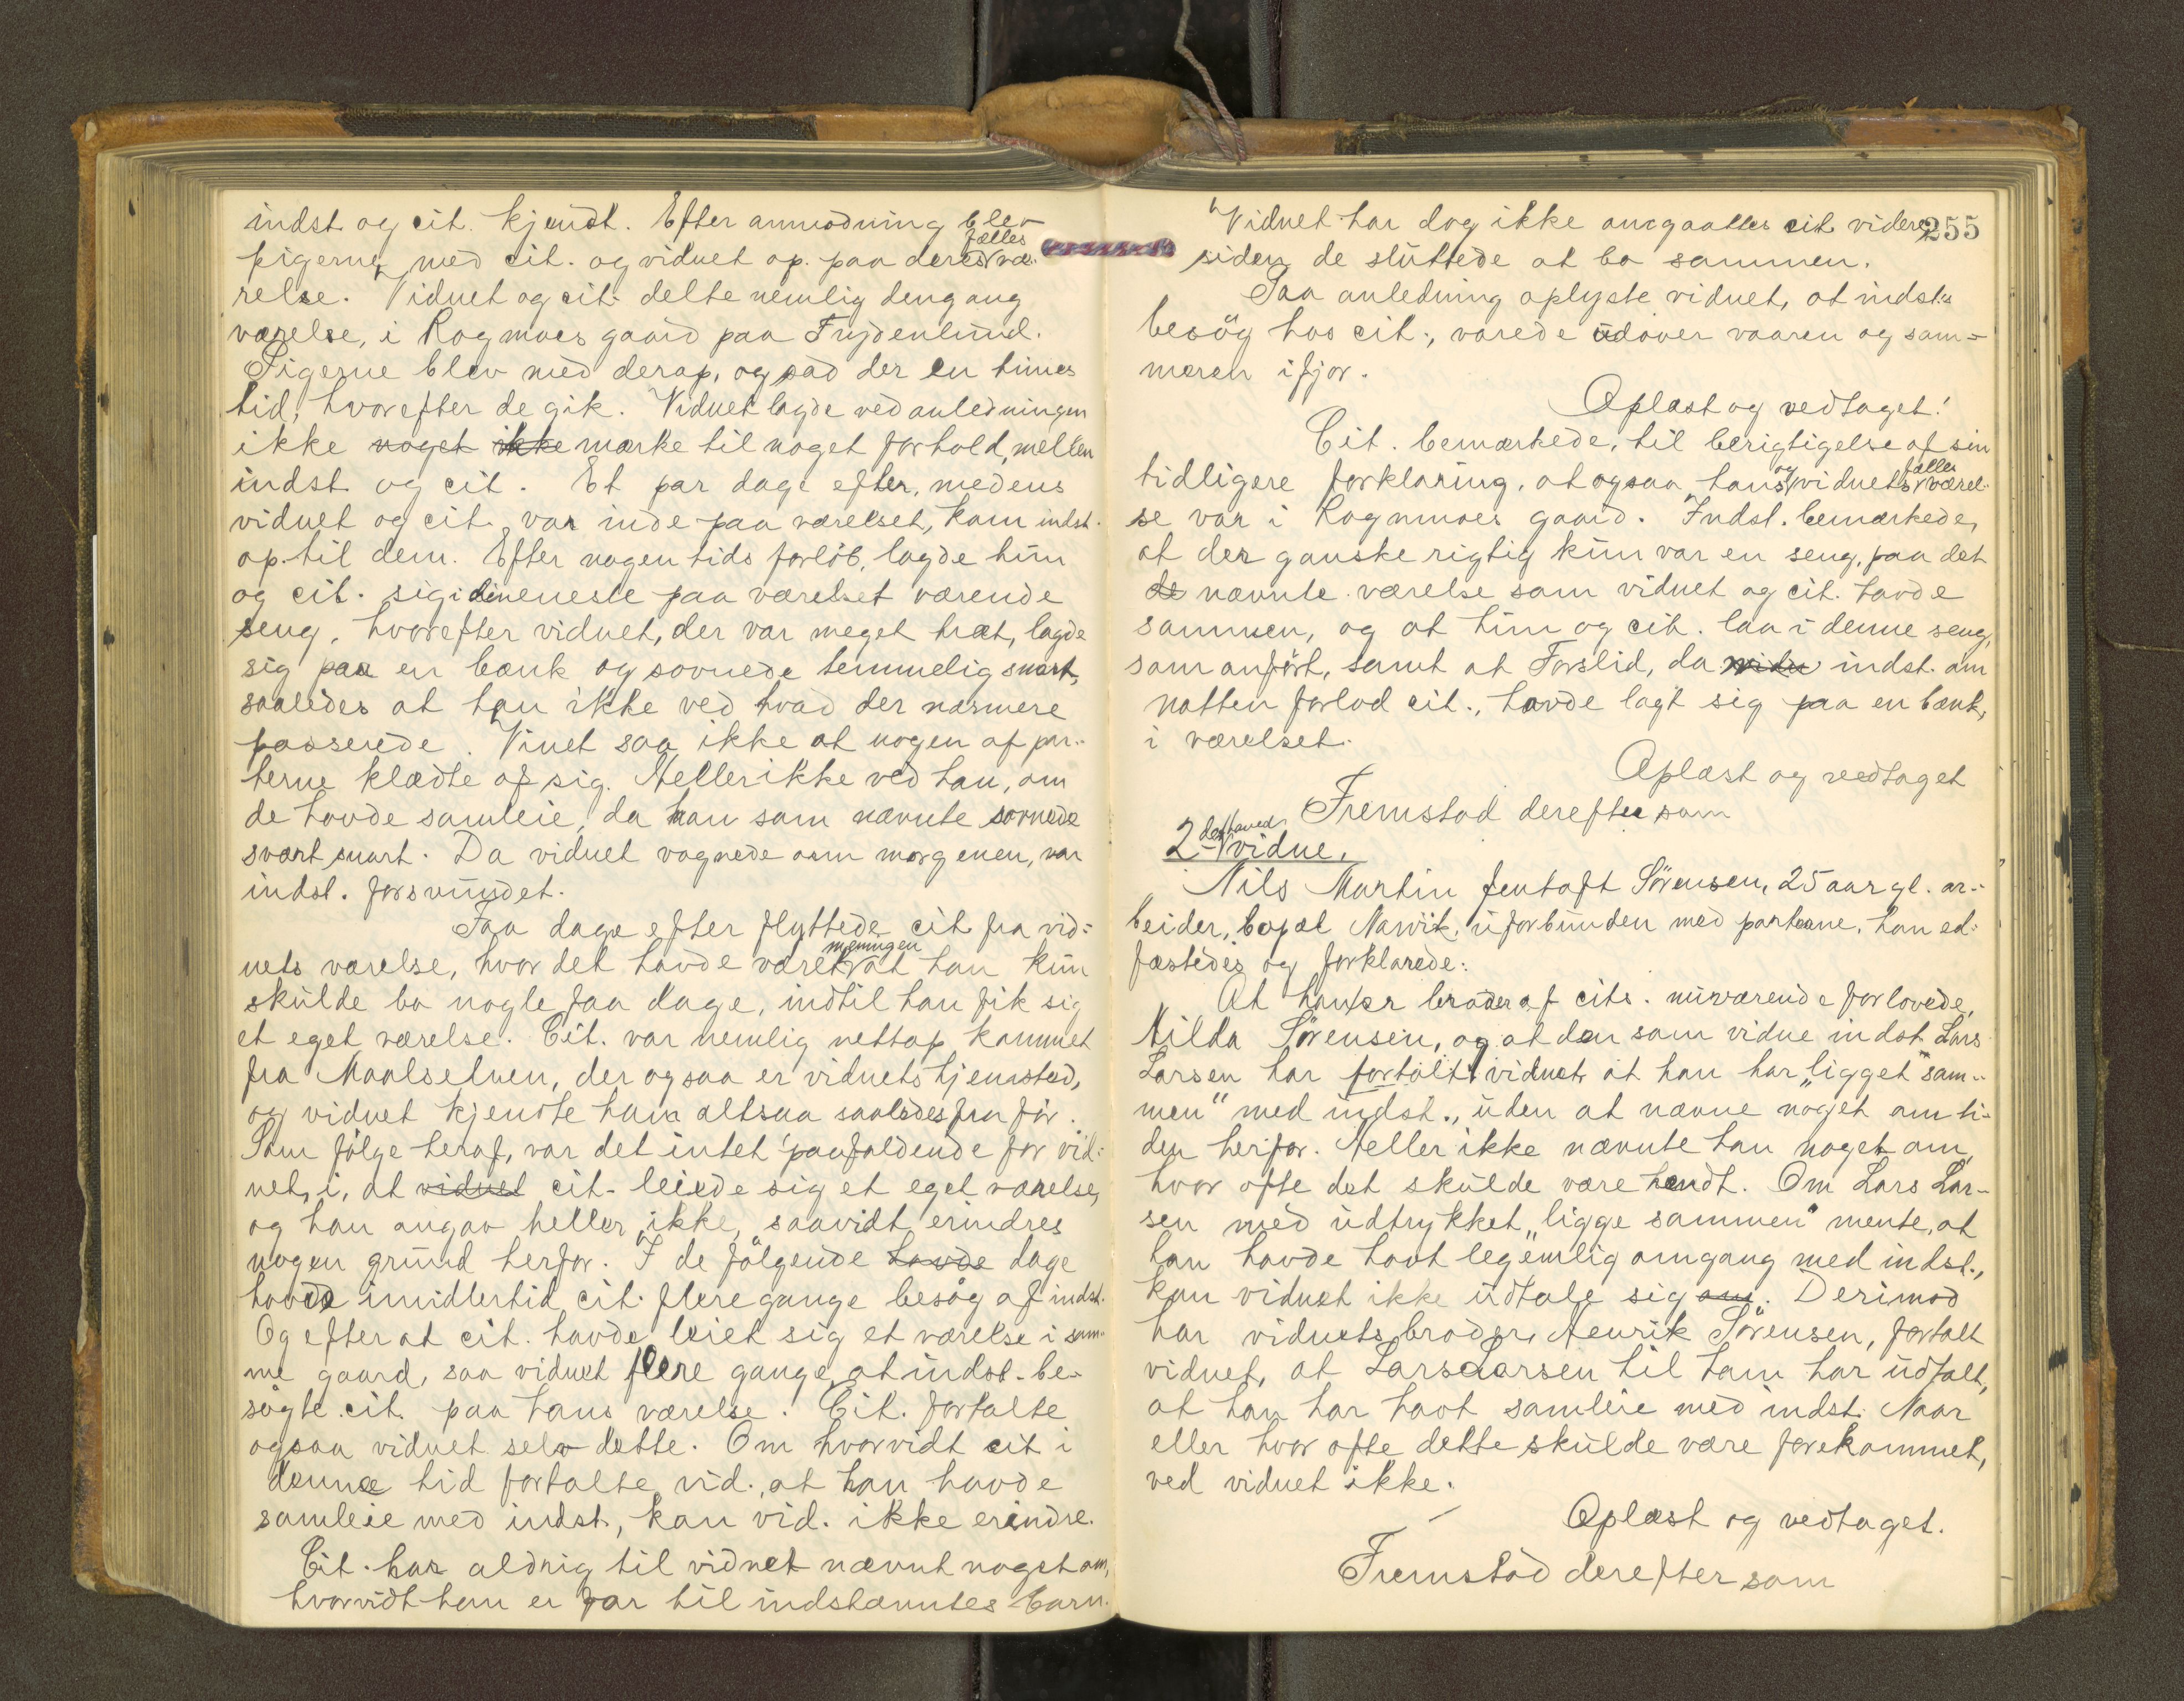 indst. og cit. kjendt. Efter anmodning blev
fælles
pigerne med cit. og vidnet op. paa deres væ-
relse. Vidnet og cit. delte nemlig dengang
værelse, i Rognmoes gaard paa Frydenlund.
Pigerne blev med derop, og sad der en times
tid, hvorefter de gik. Vidnet lagde ved anledningen
ikke noget ikke mærke til noget forhold, mellem
indst. og cit. Et par dage efter, medens
vidnet og cit. var inde paa værelset, kom indst.
op til dem. Efter nogen tids forløb, lagde hun
og cit. sig i den eneste paa værelset værende
seng, hvorefter vidnet, der var meget træt, lagde
sig paa en bænk og sovnede temmelig snart,
saaledes at han ikke ved hvad der nærmere
passerede. Vinet saa ikke at nogen af par-
terne klædte af sig. Heller ikke ved han, om
de havde samleie, da han som nævnte sovnede
svært snart. Da vidnet vognede om morgenen, var
indst. forsvundet.
Faa dage efter flyttede cit. fra vid-
meningen
nets værelse, hvor det havde været at han kun
skulde bo nogle faa dage, indtil han fik sig
et eget værelse. Cit. var nemlig nettop kommet
fra Maalselven, der ogsaa er vidnets hjemsted,
og vidnet kjendte ham altsaa saaledes fra før.
Som følge heraf, var det intet paafaldende for vid-
net, i, at vidnet cit. leiede sig et eget værelse,
og han angav heller ikke, saavidt erindres
nogen grund herfor. I de følgende havde dage
havde imidlertid cit. flere gange besøg af indst.
Og efter at cit. havde leiet sig et værelse i sam-
me gaard, saa vidnet flere gange, at indst. be-
søgte cit. paa hans værelse. Cit. fortalte
ogsaa vidnet selv dette. Om hvorvidt cit i
denne tid fortalte vid., at han havde
samleie med indst., kan vid. ikke erindre.
Cit. har aldrig til vidnet nævnt noget om,
hvorvidt han er far til indstævntes barn.
Vidnet har dog ikke omgaattes cit. videre, 255
siden de sluttede at bo sammen.
Paa anledning oplyste vidnet, at indsts
besøg hos cit., varede udover vaaren og som-
meren ifjor.
Oplæst og vedtaget!
Cit. bemærkede, til berigtigelse af sin
og fælles
tidligere forklaring, at ogsaa hans vidnets værel-
se var i Rognmoes gaard. Indst. bemærkede,
at der ganske rigtig kun var en seng, paa det
de nævnte værelse som vidnet og cit. havde
sammen, og at hun og cit. laa i denne seng,
som anført, samt at Forslid, da vidn indst. om
natten forlod cit., havde lagt sig paa en bænk,
i værelset.
Oplæst og vedtaget
Fremstod derefter som
2det vidne.
Nils Martin Jentoft Sørensen, 25 aar gl. ar-
beider, bopæl Narvik, uforbunden med parterne. Han ed-
fæstedes og forklarede:
At han er broder af cits. nuværende forlovede,
Hilda Sørensen, og at den som vidne indst. Lars
Larsen har fortalt vidnet at han har "ligget sam-
men" med indst., uden at nævne noget om ti-
den herfor. Heller ikke nævnte han noget om,
hvor ofte det skulde være hændt. Om Lars Lar-
sen med udtrykket "ligge sammen" mente, at
han havde havt legemlig omgang med indst.,
kan vidnet ikke udtale sig om. Derimod
har vidnets broder, Henrik Sørensen, fortalt
vidnet, at Lars Larsen til ham har udtalt,
at han har havt samleie med indst. Naar
eller hvor ofte dette skulde være forekommet,
ved vidnet ikke.
Oplæst og vedtaget.
Fremstod derefter som